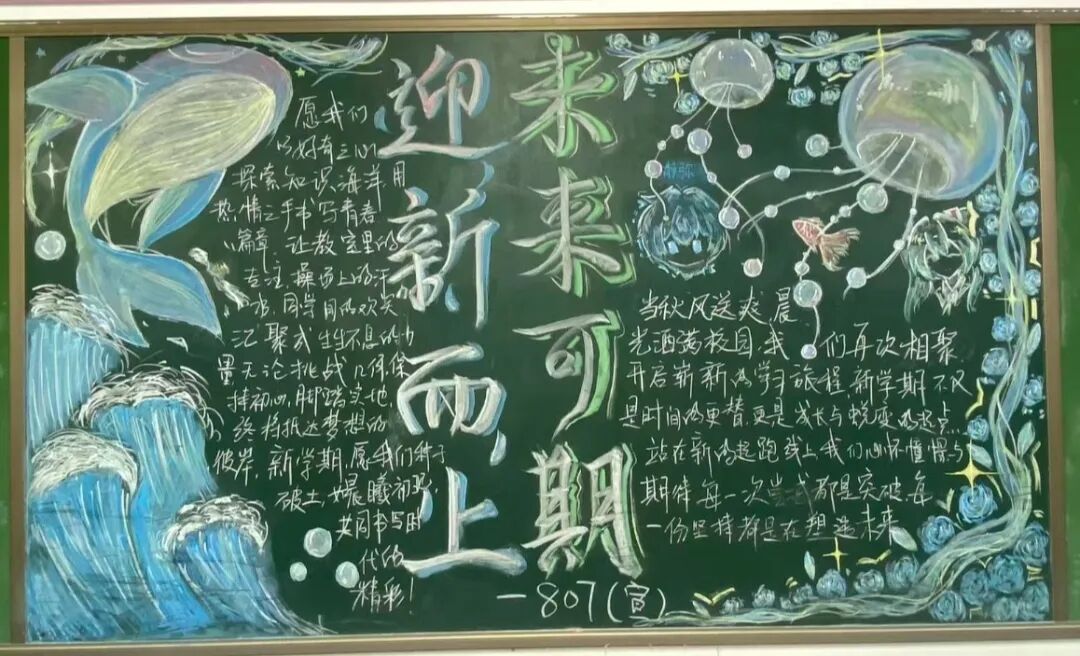 迎新而上
未来可期
愿我们
以好奇之心
探索知识海洋用
热情之手书写青春
篇章.让教室里的
专注,操场上的汗
水,同学间的欢笑
汇聚成生生不息的力
量无论挑战几何保
持初心,脚踏实地
终将抵达梦想的
彼岸,新学期,愿我们种子
破土,如晨曦初
共同书写时
代的
精彩!
当秋风送爽晨
光洒满校园我们再次相聚
开启崭新的学习旅程,新学期不仅
是时间的更替,更是成长与蜕变的起点
站在新的起跑线上我们心怀憧憬与
期待每一次尝试都是突破每
一份坚持都是在塑造未来
—807(宣)